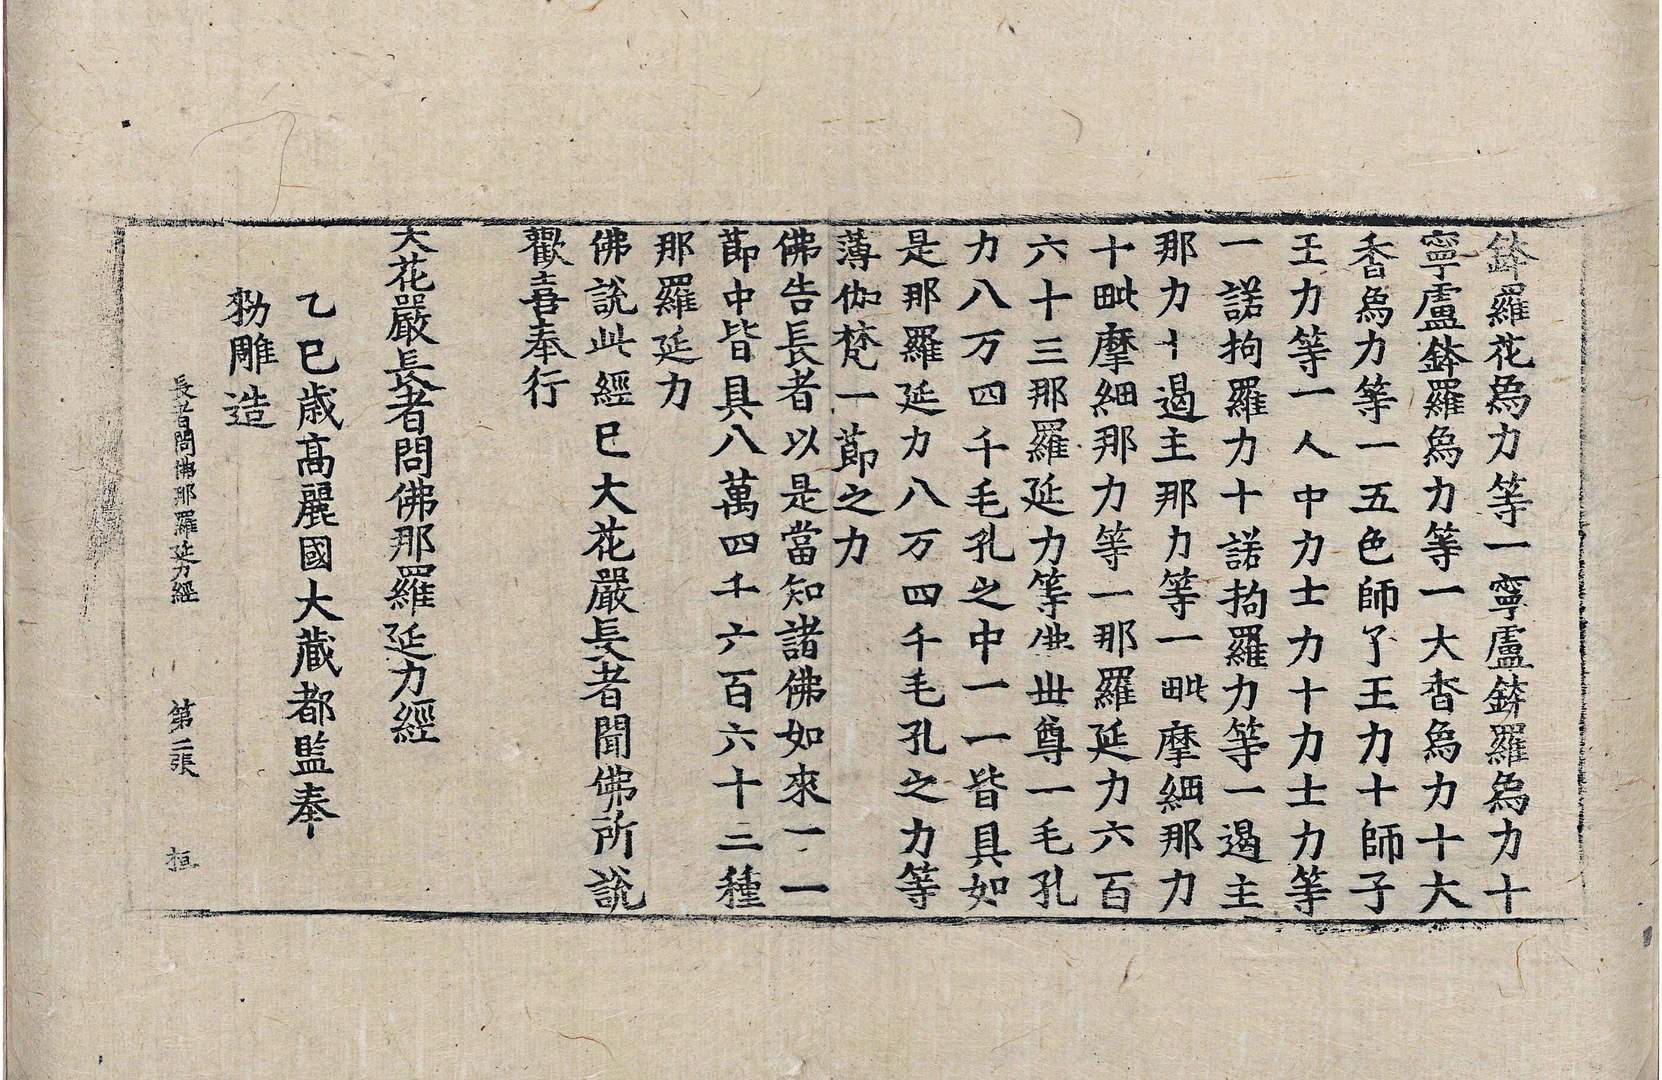 鉢羅花爲力等一寧盧鉢羅爲力十
寧盧鉢羅爲力等一大香爲力十大
香爲力等一五色師子王力十師子
王力等一人中力士力十力士力等
一諾拘羅力十諾拘羅力等一遏主
那力十遏主那力等一毗摩細那力
十毗摩細那力等一那羅延力六百
六十三那羅延力等佛世尊一毛孔
力八万四千毛孔之中一一皆具如
是那羅延力八万四千毛孔之力等
薄伽梵一節之力
佛告長者以是當知諸佛如來一一
節中皆具八萬四千六百六十三種
那羅延力
佛說此經已大花嚴長者聞佛所說
歡喜奉行
大花嚴長者問佛那羅延力經
乙巳歲高麗國大藏都監奉
勑雕造
長者問佛那羅延力經　第二張　桓